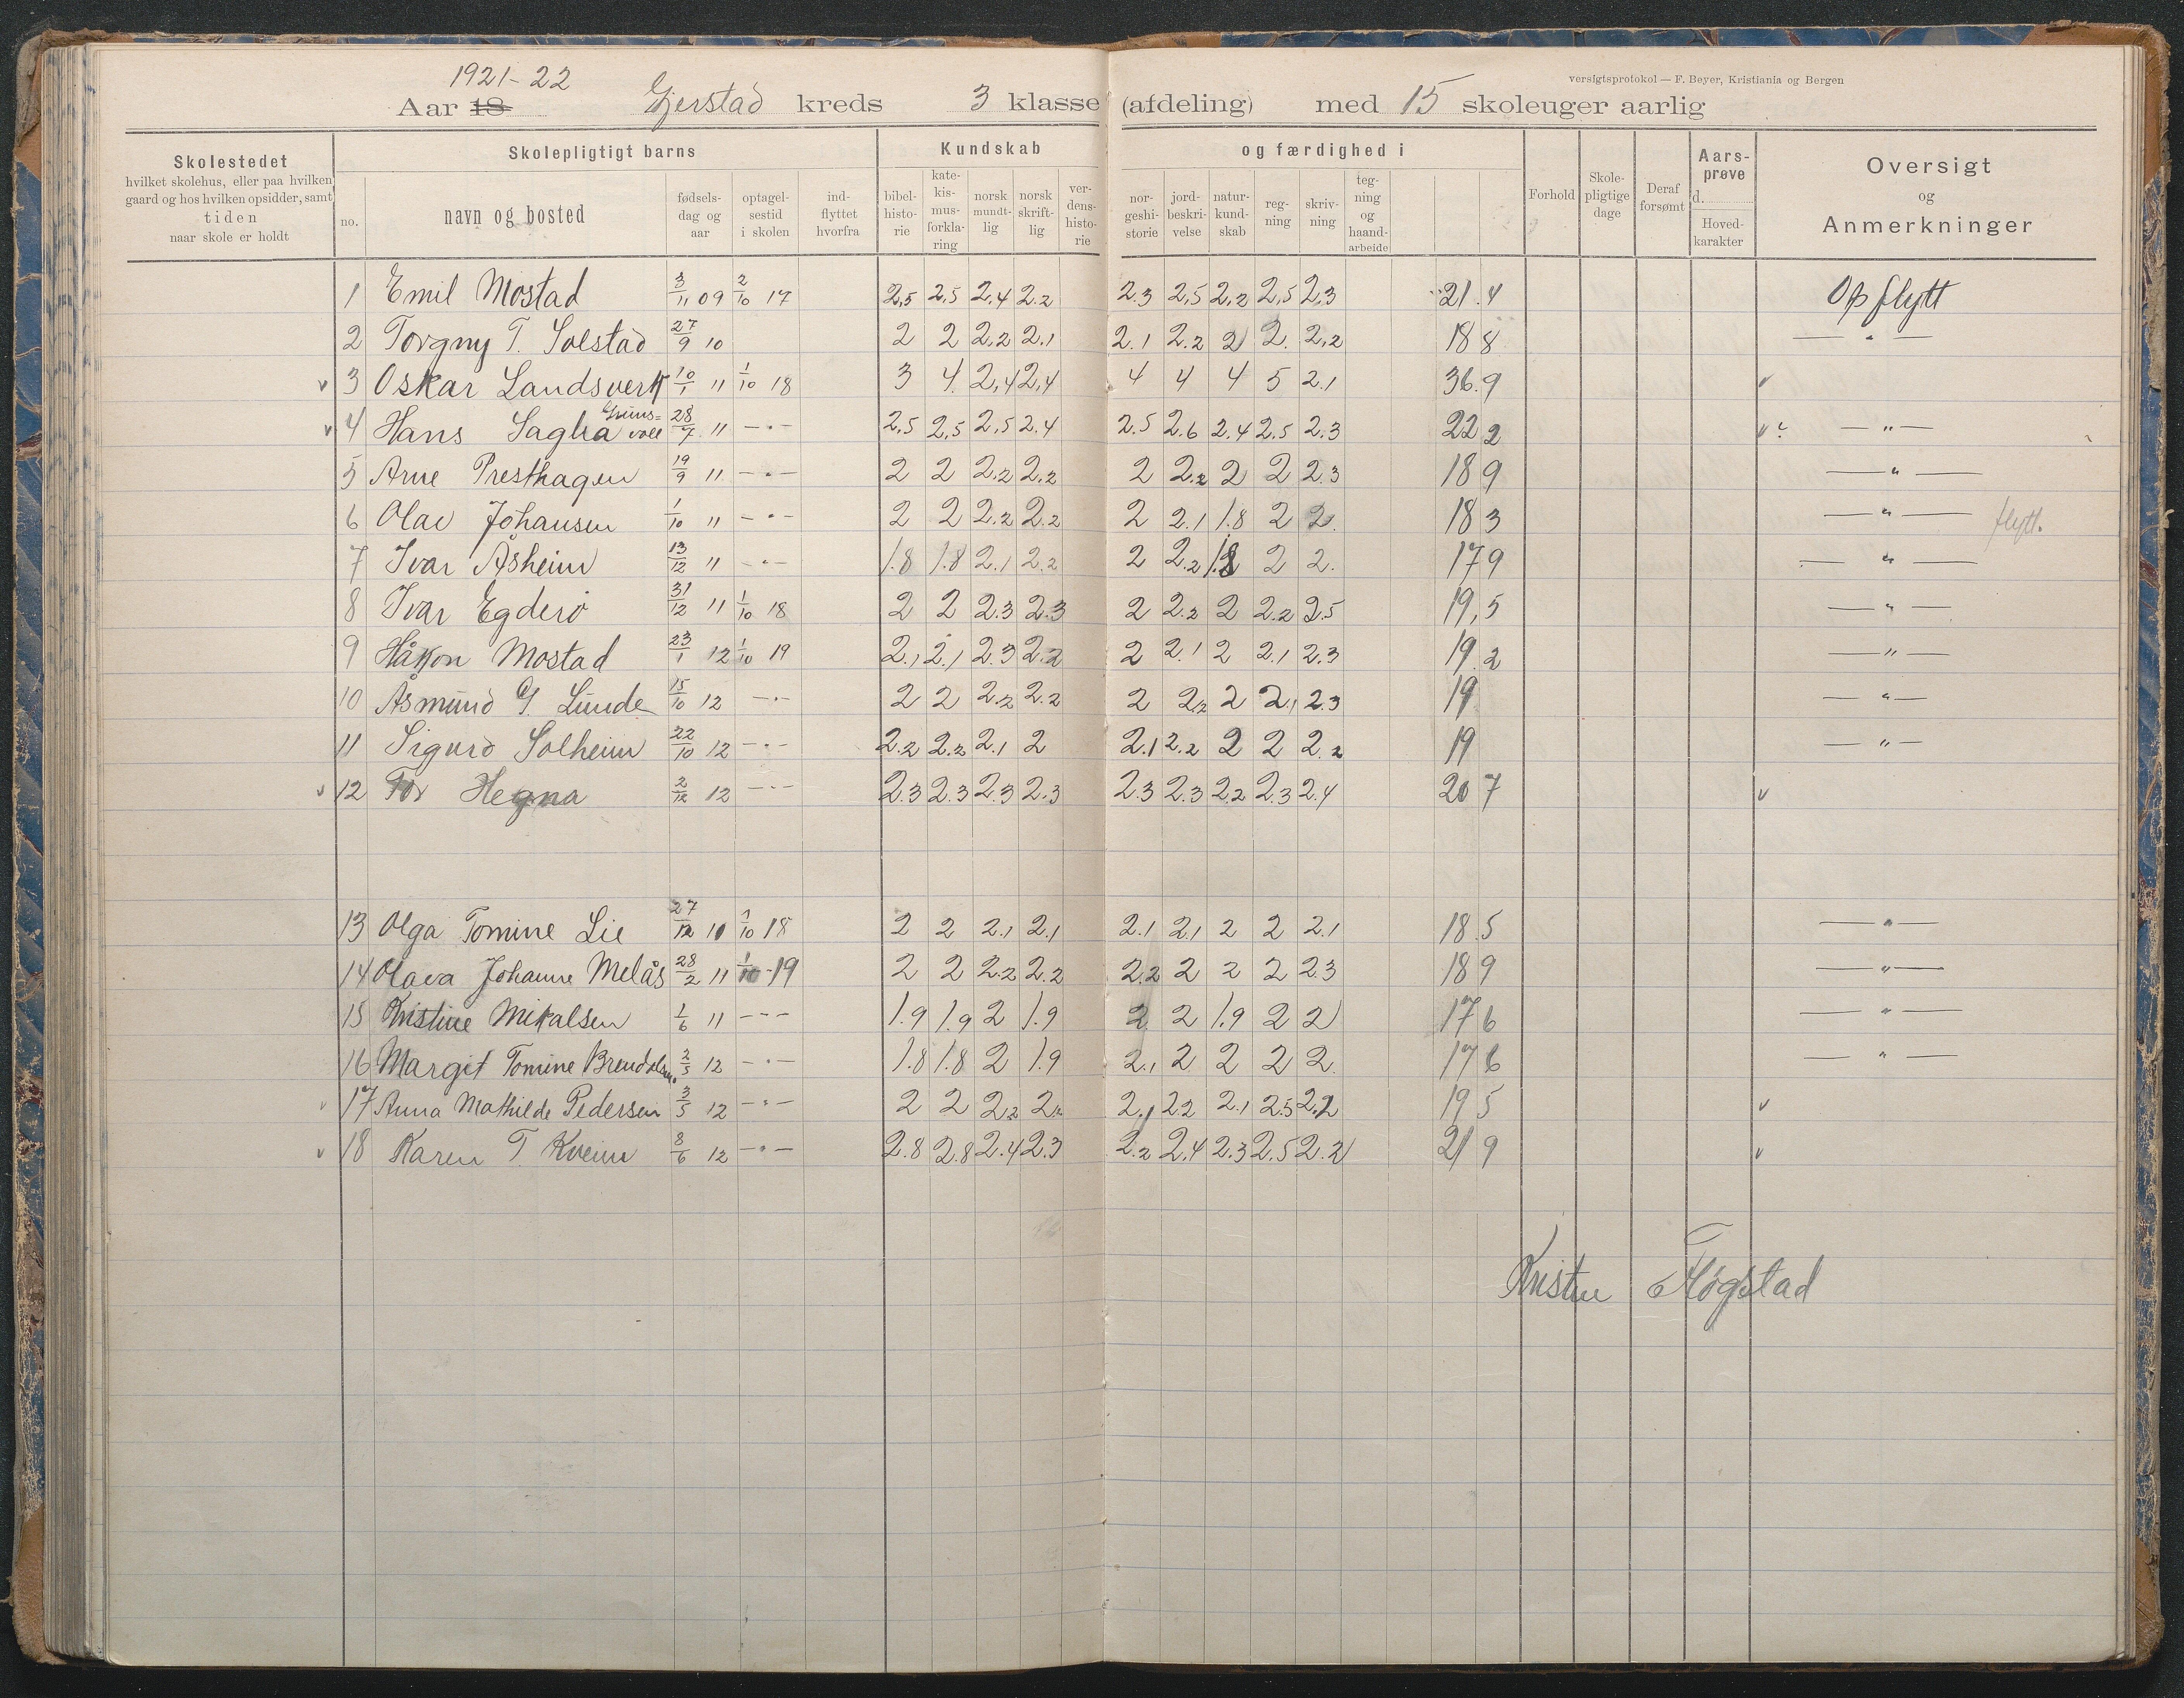 versigtsprotokol — F. Beyer, Kristiania og Bergen
1921-22
Aar 18 Gjerstad kreds 3 klasse (afdeling) med 15 skoleuger aarlig
Skolestedet
hvilket skolehus, eller paa hvilken gaard og hos hvilken opsidder, samt
tiden
naar skole er holdt
Skolepligtigt barns
no.
navn og bosted
fødsels-dag og aar
optagel-sestid i skolen
ind-flyttet hvorfra
Kundskab og færdighed i
bibel-histo-rie
kate-kis-mus-forkla-ring
norsk mundt-lig
norsk skrift-lig
ver-dens-histo-rie
nor-geshi-storie
jord-beskri-velse
natur-kund-skab
reg-ning
skriv-ning
teg-ning og haand-arbeide
Forhold
Skole-pligtige dage
Deraf forsømt
Aars-prøve
d.
Hoved-karakter
Oversigt
og
Anmerkninger
1 Emil Mostad 3/11 09 2/10 17 2,5 2,5 2,4 2.2 2.3 2,5 2,2 2,5 2,3 21.4 Opflytt
2 Torgny T. Solstad 27/9 10 2 2 2,2 2.1 2.1 2.2 2 2. 2,2 18 8 — " —
v 3 Oskar Landsverk 10/1 11 1/10 18 3 4. 2,4 2,4 4 4 4 5 2.1 36.9 v
v 4 Hans Sagha 28/7 11 — " — 2,5 2,5 2,5 2.4 2.5 2.6 2.4 2.5 2.3 22 2 v ? — " —
5 Arne Presthagen 19/9 11 — " — 2 2 2.2 2.2 2 2.2 2 2 2.3 18 9 — " —
6 Olav Johansen 1/10 11 — " — 2 2 2.2 2.2 2 2.1 1.8 2 2. 18 3 — " — flytt.
7 Ivar Åsheim 13/12 11 — " — 1.8 1.8 2.1 2.2 2 2.2 1.8 2 2. 17 9 — " —
8 Ivar Egderø 31/12 11 1/10 18 2 2 2.3 2.3 2 2.2 2 2.2 2.5 19,5 — " —
9 Håkon Mostad 23/1 12 1/10 19 2.1 2.1 2.3 2.2 2 2.1 2 2.1 2.3 19.2 — " —
10 Åsmund G. Lunde 15/10 12 — " — 2 2 2.2 2.2 2 2.2 2 2.1 2.3 19 — " —
11 Sigurd Solheim 22/10 12 — " — 2.2 2.2 2.1 2 2.1 2.2 2 2 2.2 19 — " —
v 12 Tor Hegna 2/12 12 — " — 2.3 2.3 2.3 2.3 2.3 2.3 2.2 2.3 2.4 20 7 v
13 Olga Tomine Lie 27/12 10 1/10 18 2 2 2.1 2.1 2.1 2.1 2 2 2.1 18.5 — " —
14 Olava Johanne Melås 28/2 11 1/10 19 2 2 2.2 2.2 2.2 2 2 2 2.3 18 9 — " —
15 Kristine Mikalsen 1/6 11 — " — 1.9 1.9 2 1.9 2 2 1.9 2 2 17 6 — " —
16 Margit Tomine 2/5 12 — " — 1.8 1.8 2 1.9 2.1 2 2 2 2. 17 6 — " —
v 17 Anna Mathilde Pedersen 3/5 12 — " — 2 2 2.2 2.2 2.1 2.2 2.1 2.5 2.2 19 5 v
v 18 Karen T. Kveim 8/6 12 — " — 2.8 2.8 2.4 2.3 2.2 2.4 2.3 2.5 2.2 21 9 v
Kristen Fløgstad